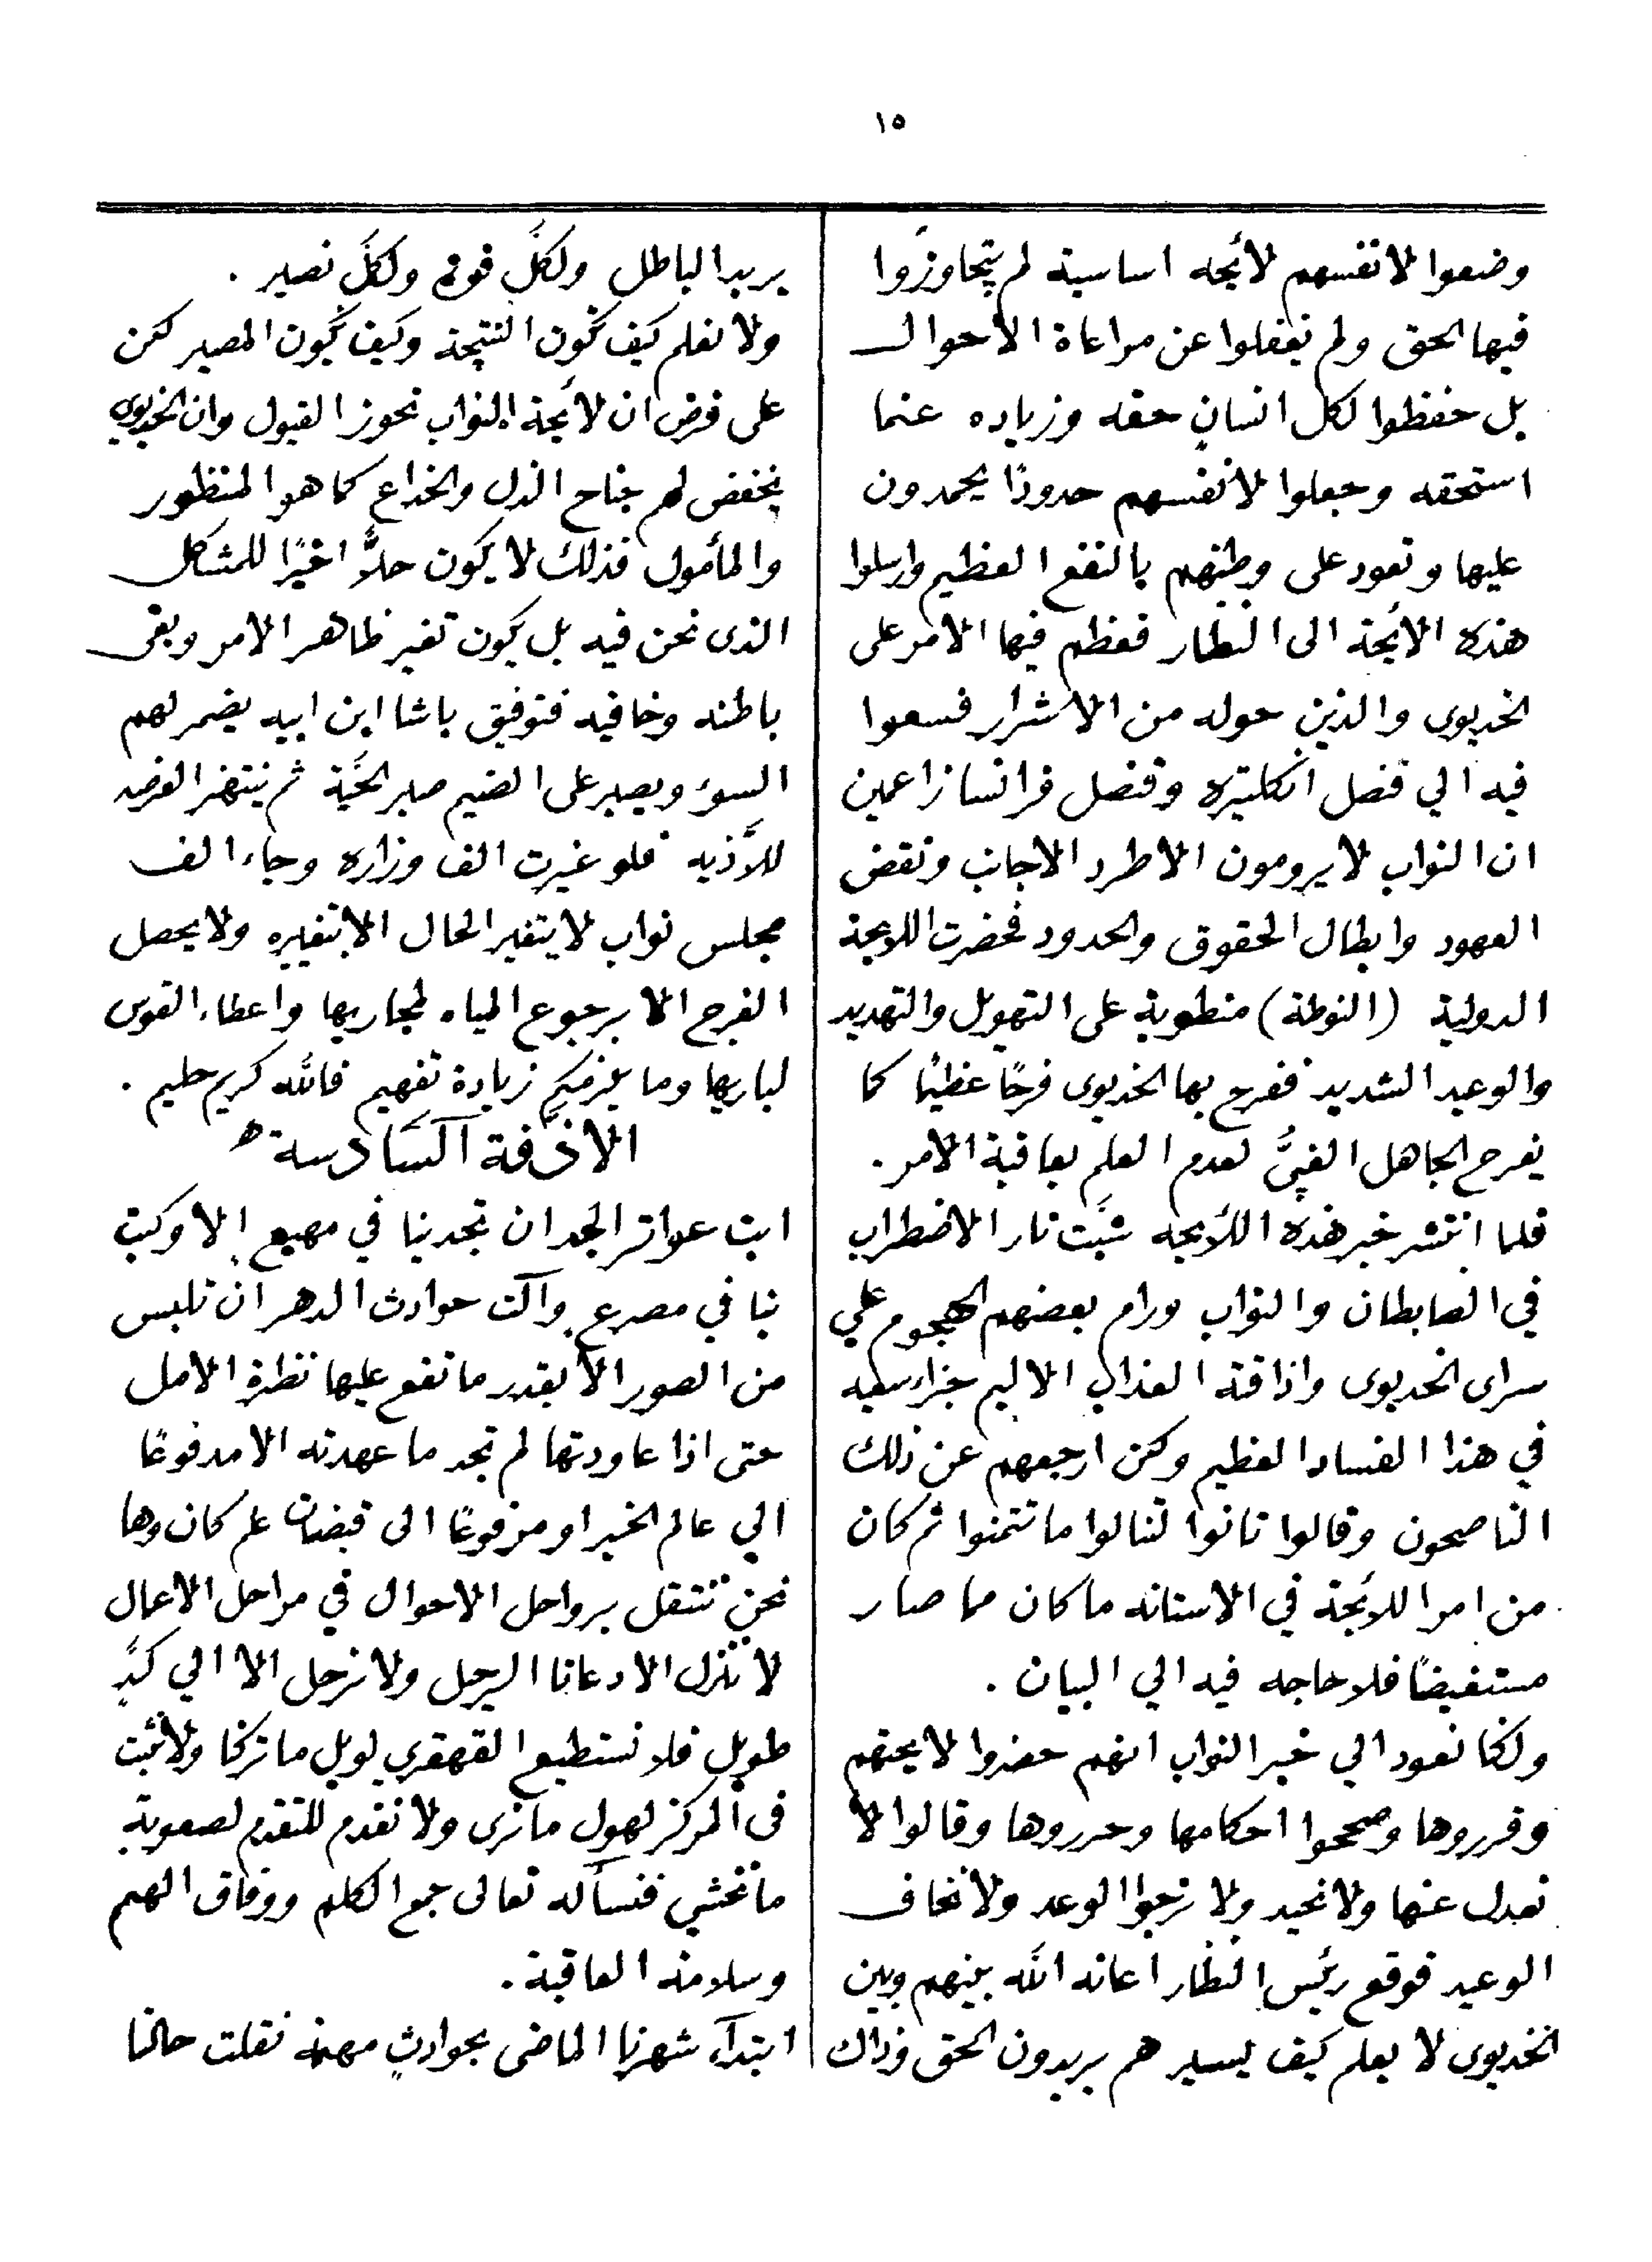 ١٥
وضعوا لانفسهم لأئحه اساسية لم يتجاوزوا
فيها الحق ولم يغفلوا عن مراعاة الأحوال
بل حفظوا لكل انسانٍ حقه وزياده عنما
استحقه وجعلوا لانفسهم حدودًا يحمدون
عليها وتعود على وطنهم بالنفع العظيم وارسلوا
هذه الائحة الى النظار فعظم فيها الامر على
الخديوى والذين حوله من الاشرار فسعوا
فيه الي قنصل انكلتيره وقنصل فرانسا زاعمين
ان النواب لا يرومون الا طرد الاجانب ونقض
العهود وابطال الحقوق والحدود فحضرت اللائحة
الدولية (النوطة) منطوية على التهويل والتهديد
والوعيد الشديد ففرح بها الخديوى فرحًا عظيمًا كما
يفرح الجاهل الغبيُّ لعدم العلم بعاقبة الامر .
فلما انتشر خبر هذه اللائحه شبَّت نار الاضطراب
في الضابطان والنواب ورام بعضهم الهجوم علي
سراى الخديوى واذاقته العذاب الاليم جزاء سعيه
في هذا الفساد العظيم ولكن ارجعهم عن ذلك
الناصحون وقالوا تانوا لتنالوا ما تتمنوا ثم كان
من امر اللائحة في الاستانه ما كان مما صار
مستفيضًا فلا حاجه فيه الي البيان .
ولكنا نعود الي خبر النواب انهم حضروا لايحتهم
وقرروها وصححوا احكامها وحرروها وقالوا لا
نعدل عنها ولا نحيد ولا نرجوا الوعد ولا نخاف
الوعيد فوقع رئيس النظار اعانه الله بينهم وبين
الخديوى لا يعلم كيف يسير هم يريدون الحق وذاك
يريد الباطل ولكلٍّ قوة ولكلٍّ نصير .
ولا نعلم كيف تكون النتيجة وكيف يكون المصير لكن
على فرض ان لائحة النواب تحوز القبول وان الخديوى
يخفض لهم جناح الذل والخداع كما هو المنظور
والمأمول فذلك لا يكون حلاًّ اخيرًا للمشاكل
الذى نحن فيه بل يكون تغير ظاهر الامر وبقى
باطنه وخافيه فتوفيق باشا ابن ابيه يضمر لهم
السوء ويصبر على الضيم صبر الحيَّة ثم ينتهز الفرصه
للأذيه فلو غيرت الف وزاره وجاء الف
مجلس نواب لا يتغير الحال الا بتغييره ولا يحصل
الفرج الا برجوع المياه لمجاريها واعطاء القوس
لباريها وما يلزمكم زيادة تفهيم فالله كريم حليم .
الازفة السادسة
ابت عواثر الجد ان تجد بنا في مهيع إلا وكبت
بنا في مصرع وآلت حوادث الدهر ان تلبس
من الصور الا بقدر ما تقع عليها نظرة الامل
حتى اذا عاودتها لم تجد ما عهدته الا مدفوعًا
الي عالم الخبر او مرفوعًا الى قبضات علم كان وها
نحن ننتقل برواحل الاحوال في مراحل الاعمال
لا ننزل الا دعانا الرحيل ولا نرحل الا الي كدٍّ
طويل فلا نستطيع القهقري لويل ما تركنا ولا نثبت
فى المركز لهول ما نرى ولا نقدم للتقدم لصعوبة
ما نخشي فنسأله تعالى جمع الكلم ووفاق الهمم
وسلامة العاقبة .
ابتدآء شهرنا الماضى بحوادثٍ مهمة نقلت حالنا